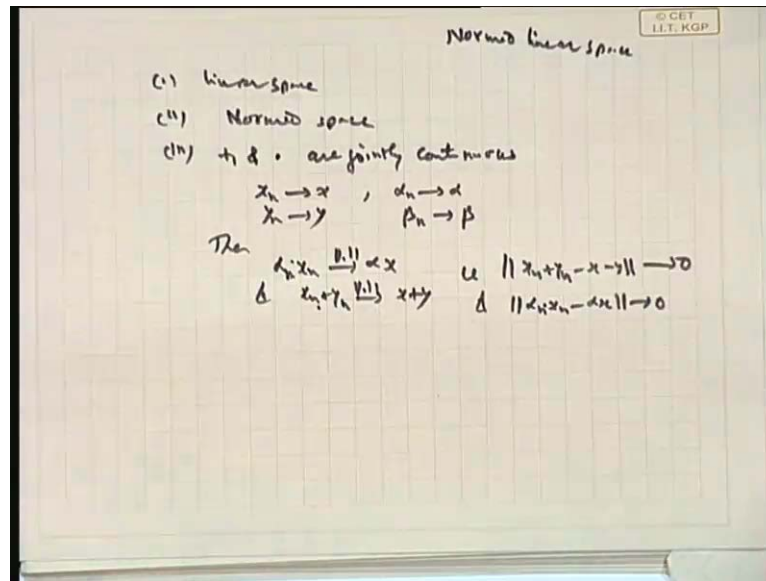 © CET
I.I.T. KGP
Normed linear space
(i) linear space
(ii) Normed space
(iii) +, & · are jointly continuous
xₙ → x , αₙ → α
yₙ → y βₙ → β
Then
αₙ·xₙ —‖·‖→ αx ie ‖xₙ+yₙ-x-y‖ → 0
& xₙ+yₙ —‖·‖→ x+y & ‖αₙ·xₙ-αx‖ → 0